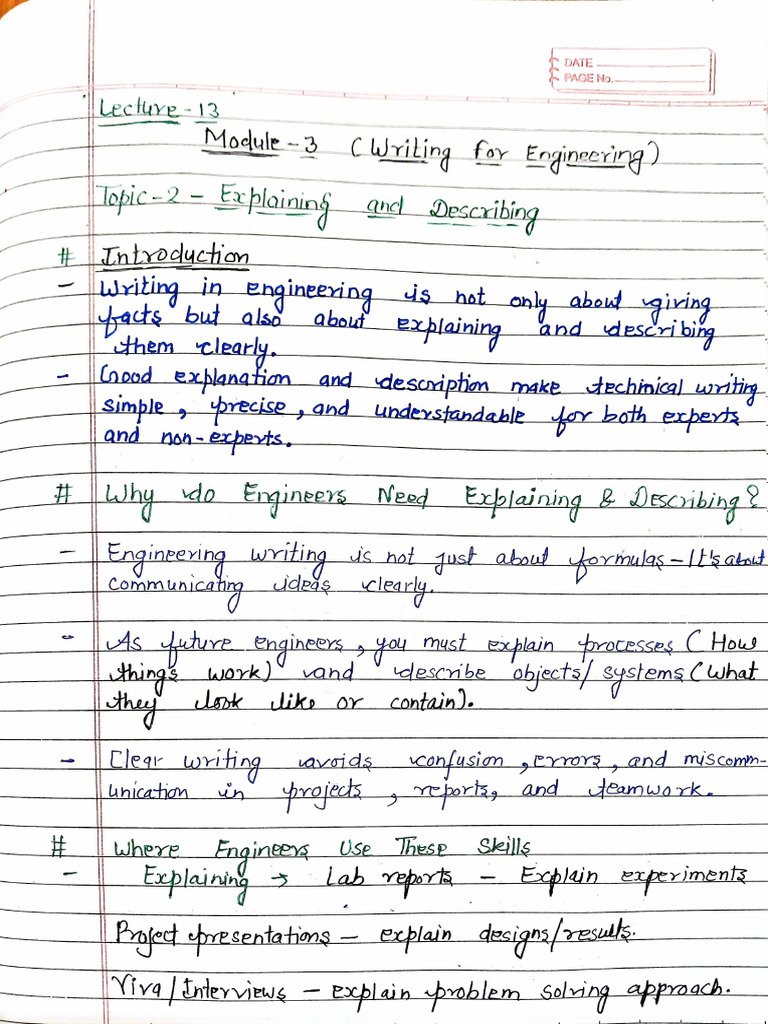 DATE
PAGE No.
Lecture-13
Module-3 (Writing for Engineering)
Topic-2 - Explaining and Describing
# Introduction
- Writing in engineering is not only about giving
facts but also about explaining and describing
them clearly.
- Good explanation and description make techinical writing
simple, precise, and understandable for both experts
and non-experts.
# Why do Engineers Need Explaining & Describing?
- Engineering writing is not just about formulas - It's about
communicating ideas clearly.
- As future engineers, you must explain processes (How
things work) and describe objects/systems (what
they look like or contain).
- Clear writing avoids confusion, errors, and miscomm-
unication in projects, reports, and teamwork.
# Where Engineers Use These Skills
- Explaining → Lab reports - Explain experiments
Project presentations - explain designs/results.
Viva/Interviews - explain problem solving approach.